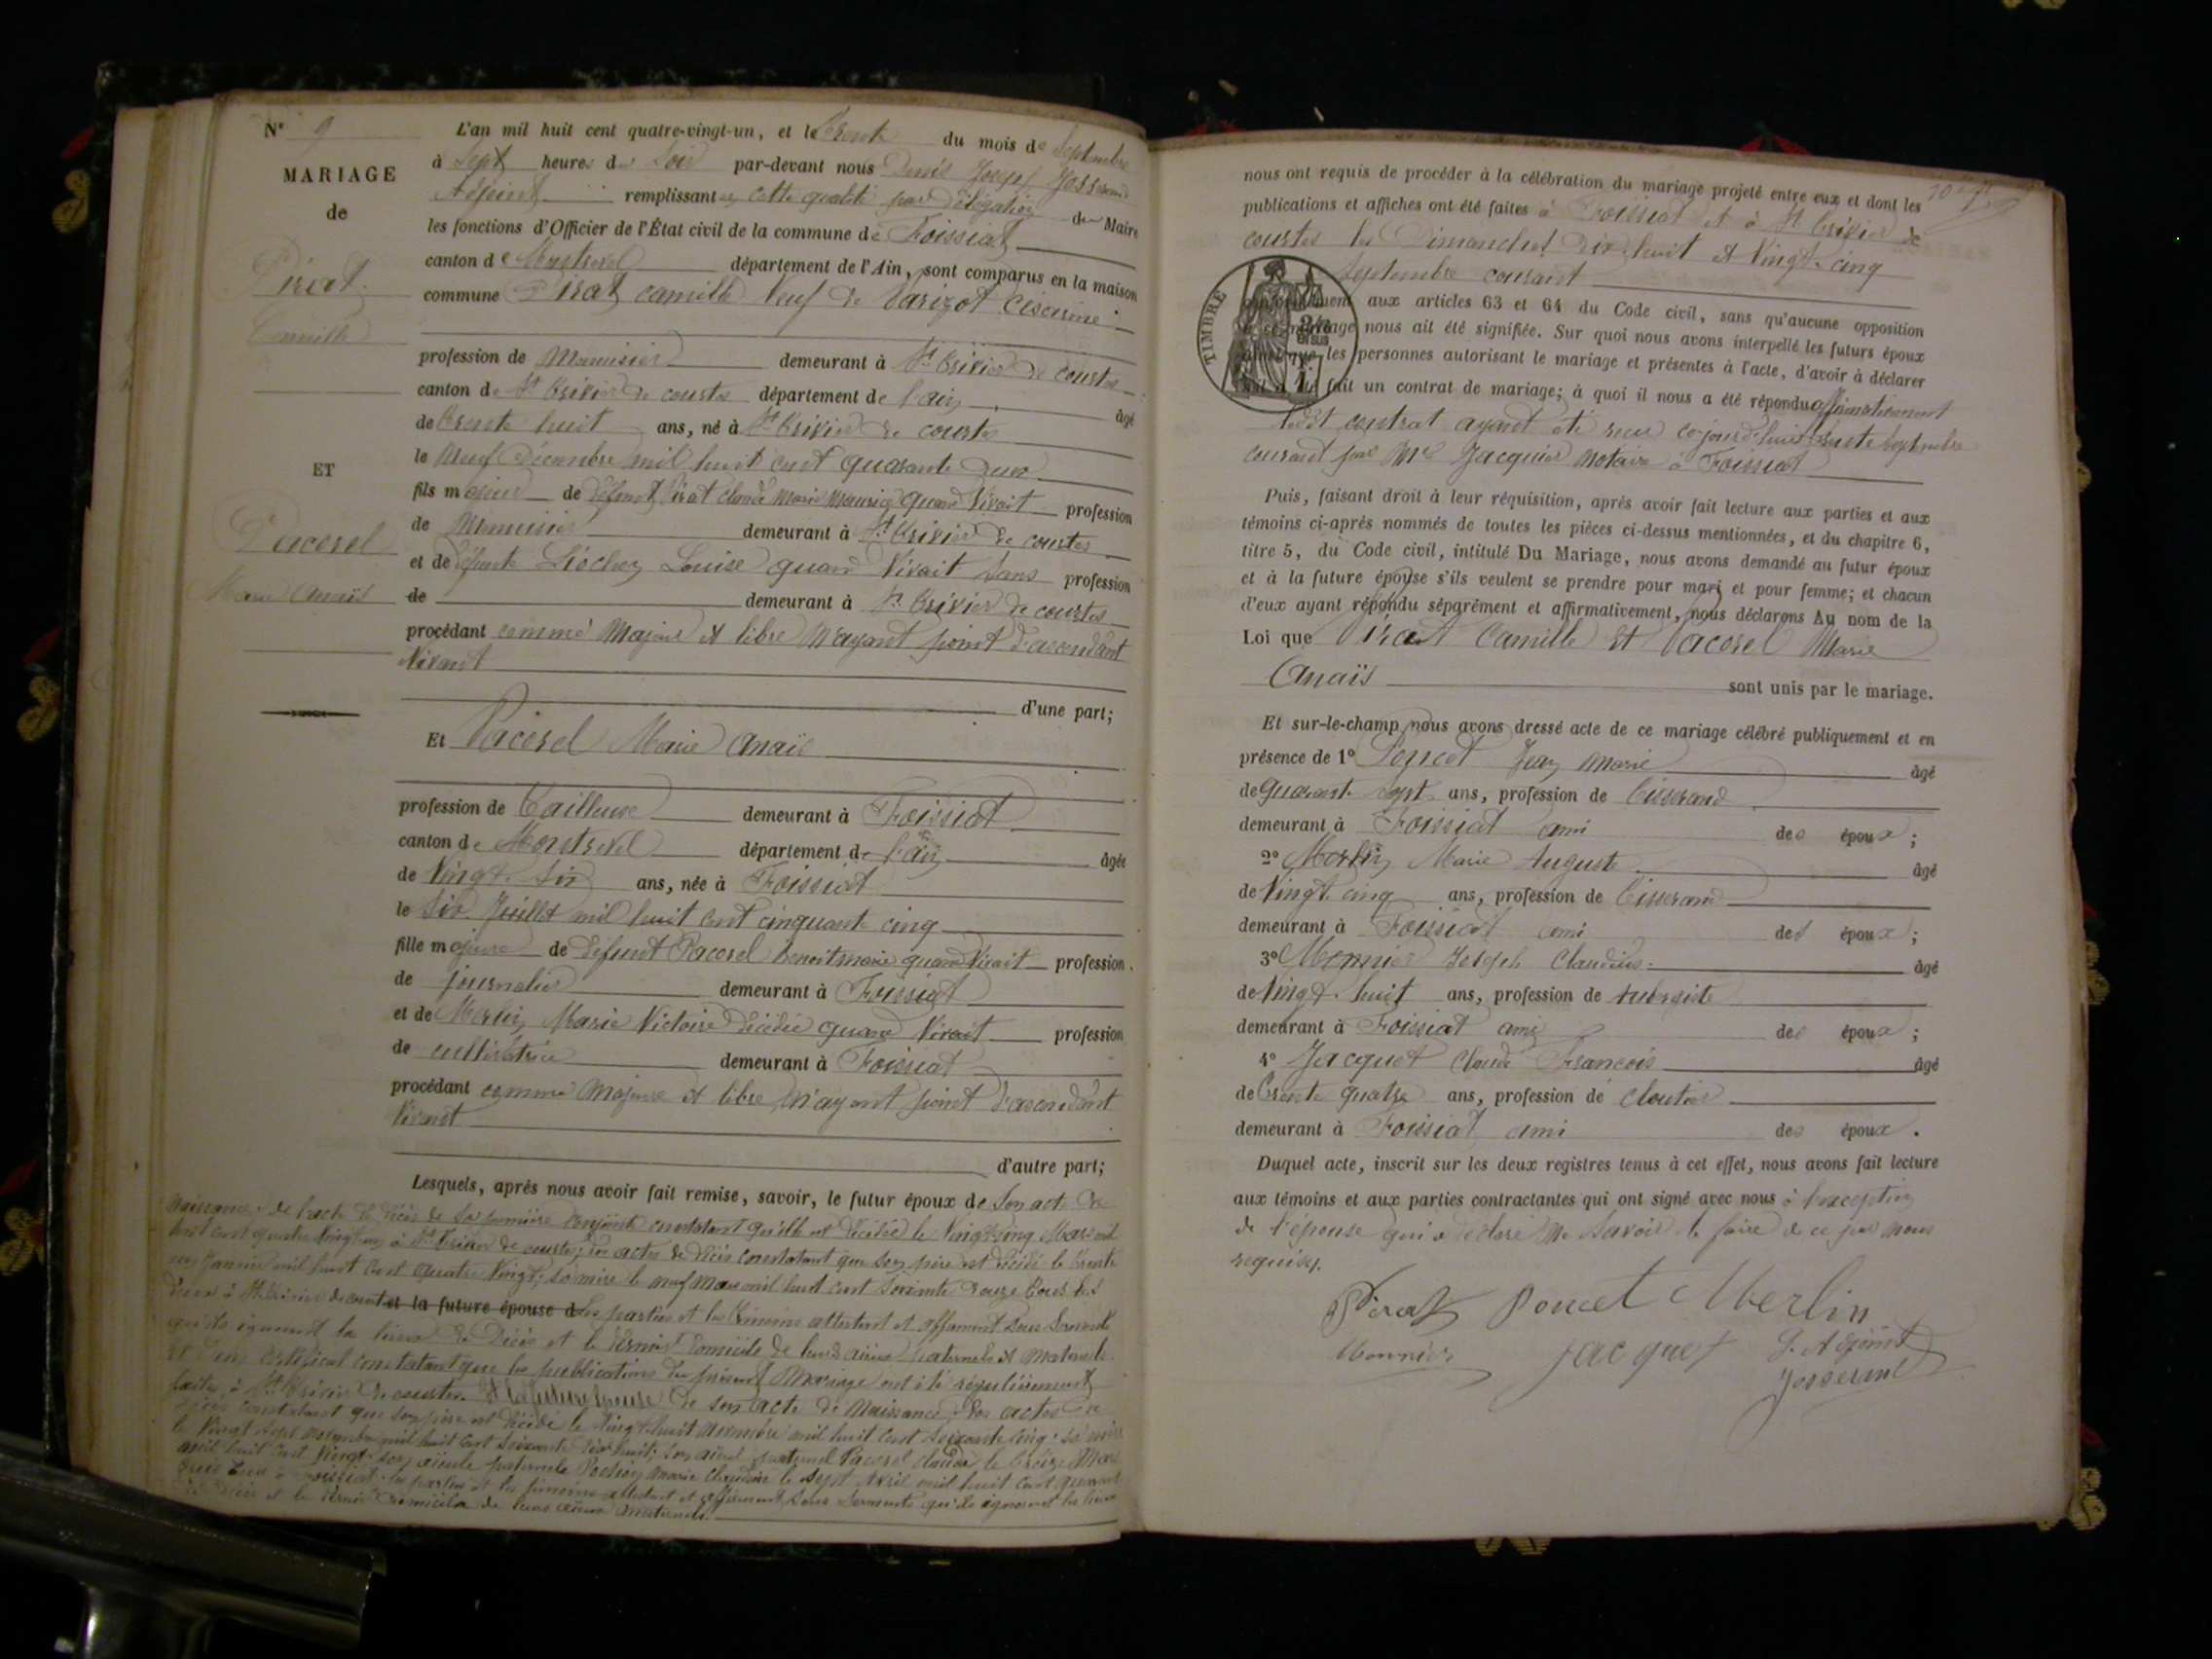 N° 9
MARIAGE
de
Pirat
Camille
ET
Pacorel
Marie Anaïs
L'an mil huit cent quatre-vingt-un, et le trente du mois de Septembre
à Sept heures du Soir par-devant nous Denis Joseph Josserand
Adjoint remplissant en cette qualité par délégation du Maire
les fonctions d'Officier de l'État civil de la commune de Foissiat
canton de Montrevel département de l'Ain, sont comparus en la maison
commune Pirat camille Veuf de Varizot Césarine
profession de Menuisier demeurant à St Trivier de courtes
canton de St Trivier de courtes département de l'ain âgé
de trente huit ans, né à St Trivier de courtes
le neuf Décembre mil huit cent quarante deux
fils majeur de défunt Pirat claude Marie Maurice quand Vivait profession
de Menuisier demeurant à St Trivier de courtes
et de défunte Liochon Louise quand Vivait Sans profession
de demeurant à St Trivier de courtes
procédant comme Majeur et libre N'ayant point d'ascendant
Vivant
d'une part;
Et Pacorel Marie Anaïs
profession de Tailleuse demeurant à Foissiat
canton de Montrevel département de l'ain âgée
de Vingt Six ans, née à Foissiat
le Six Juillet mil huit cent cinquante cinq
fille majeure de défunt Pacorel Benoit marie quand Vivait profession
de journalier demeurant à Foissiat
et de Marie Victoire décédée quand Vivait profession
de cultivatrice demeurant à Foissiat
procédant comme Majeure et libre N'ayant point d'ascendant
Vivant
d'autre part;
Lesquels, après nous avoir fait remise, savoir, le futur époux de Son acte de
Naissance; de l'acte de décès de Sa première conjointe constatant qu'elle est décédée le Vingt cinq Mars mil
huit cent quatre Vingt un à St Trivier de courtes; des actes de décès constatant que son père est décédé le trente
un Janvier mil huit cent quatre Vingt; sa mère le neuf Mars mil huit cent Soixante douze tous les
deux à St Trivier de courtes et la future épouse de les parties et les témoins attestent et affirment sous Serment
qu'ils ignorent les lieux de Décès et le dernier domicile de leurs aïeux paternels et maternels
et d'un certificat constatant que les publications du présent Mariage ont été régulièrement
faites à St Trivier de courtes. Et la future épouse de son acte de Naissance; des actes de
décès constatant que son père est décédé le Vingt huit Novembre mil huit cent Soixante cinq; sa mère
le Vingt Sept Novembre mil huit cent Soixante dix huit; son aïeul paternel Pacorel claude le treize Mars
mil huit cent Vingt; son aïeule paternelle Marie Claudine le Sept Avril mil huit cent quarante
tous à Foissiat. les parties et les témoins attestent et affirment sous Serment qu'ils ignorent les lieux
de Décès et le dernier domicile de leurs aïeux maternels.
nous ont requis de procéder à la célébration du mariage projeté entre eux et dont les
publications et affiches ont été faites à Foissiat et à St Trivier de
courtes les Dimanches Dix huit et Vingt cinq
Septembre courant
conformément aux articles 63 et 64 du Code civil, sans qu'aucune opposition
à ce mariage nous ait été signifiée. Sur quoi nous avons interpellé les futurs époux
ainsi que les personnes autorisant le mariage et présentes à l'acte, d'avoir à déclarer
s'il a été fait un contrat de mariage; à quoi il nous a été répondu affirmativement
ledit contrat ayant été reçu ce jourd'hui trente Septembre
courant par Me Jacquier Notaire à Foissiat
TIMBRE
Puis, faisant droit à leur réquisition, après avoir fait lecture aux parties et aux
témoins ci-après nommés de toutes les pièces ci-dessus mentionnées, et du chapitre 6,
titre 5, du Code civil, intitulé Du Mariage, nous avons demandé au futur époux
et à la future épouse s'ils veulent se prendre pour mari et pour femme; et chacun
d'eux ayant répondu séparément et affirmativement, nous déclarons Au nom de la
Loi que Pirat Camille Et Pacorel Marie
Anaïs sont unis par le mariage.
Et sur-le-champ nous avons dressé acte de ce mariage célébré publiquement et en
présence de 1° Poncet Jean Marie âgé
de Quarante sept ans, profession de Tisserand
demeurant à Foissiat ami des époux;
2° Merlin Marie Auguste âgé
de Vingt cinq ans, profession de Tisserand
demeurant à Foissiat ami des époux;
3° Monnier Joseph Claudius âgé
de Vingt huit ans, profession de Aubergiste
demeurant à Foissiat ami des époux;
4° Jacquet Claude François âgé
de Trente quatre ans, profession de cloutier
demeurant à Foissiat ami des époux.
Duquel acte, inscrit sur les deux registres tenus à cet effet, nous avons fait lecture
aux témoins et aux parties contractantes qui ont signé avec nous à l'exception
de l'épouse qui a déclaré Ne Savoir le faire de ce par nous
requise.
Pirat Poncet Merlin
Monnier Jacquet L'Adjoint
Josserand